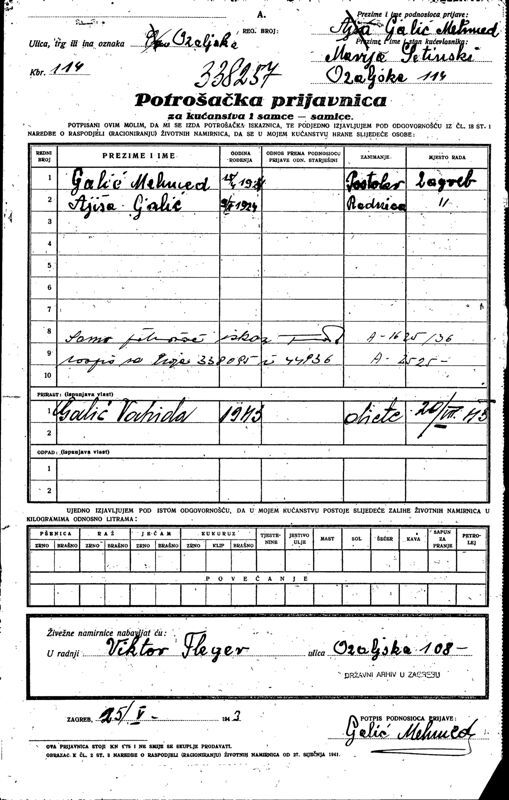 A.
REG. BROJ:
Prezime i ime podnosioca prijave:
Galić Mehmed
Ulica, trg ili ina oznaka Ozaljska
Prezime i ime i stan kućevlasnika:
Marija Petinski
Kbr. 114
338257
Ozaljska 114
Potrošačka prijavnica
za kućanstva i samce — samice.
POTPISANI OVIM MOLIM, DA MI SE IZDA POTROŠAČKA ISKAZNICA, TE PODJEDNO IZJAVLJUJEM POD ODGOVORNOŠĆU IZ ČL. 18 ST. 1
NAREDBE O RASPODJELI (RACIONIRANJU) ŽIVOTNIH NAMIRNICA, DA SE U MOJEM KUĆANSTVU HRANE SLIJEDEĆE OSOBE:
REDNI BROJ PREZIME I IME GODINA ROĐENJA ODNOS PREMA PODNOSIOCU PRIJAVE ODN. STARJEŠINI ZANIMANJE MJESTO RADA
1 Galić Mehmed Postolar Zagreb
2 Ajiša Galić 1924 Radnica "
3
4
5
6
7
8 Samo iskaz A-1625/36
9 338085 i 44936 A-2525-
10
PRIRAST: (Ispunjava vlast)
1 Galić Vahida 1943 dijete 20/VII. 43
2
OTPAD: (Ispunjava vlast)
1
2
UJEDNO IZJAVLJUJEM POD ISTOM ODGOVORNOŠĆU, DA U MOJEM KUĆANSTVU POSTOJE SLIJEDEĆE ZALIHE ŽIVOTNIH NAMIRNICA U
KILOGRAMIMA ODNOSNO LITRAMA:
PŠENICA RAŽ JEČAM KUKURUZ TJESTENINE JESTIVO ULJE MAST SOL ŠEĆER KAVA SAPUN ZA PRANJE PETROLEJ
ZRNO BRAŠNO ZRNO BRAŠNO ZRNO BRAŠNO ZRNO KLIP BRAŠNO
POVEĆANJE
Živežne namirnice nabavljat ću:
U radnji Viktor Fleger ulica Ozaljska 108-
DRŽAVNI ARHIV U ZAGREBU
ZAGREB, 25/V- 1943
POTPIS PODNOSIOCA PRIJAVE:
Galić Mehmed
OVA PRIJAVNICA STOJI KN 0'75 I NE SMIJE SE SKUPLJE PRODAVATI.
OBRAZAC K ČL. 2 ST. 2 NAREDBE O RASPODJELI (RACIONIRANJU) ŽIVOTNIH NAMIRNICA OD 27. SIJEČNJA 1941.